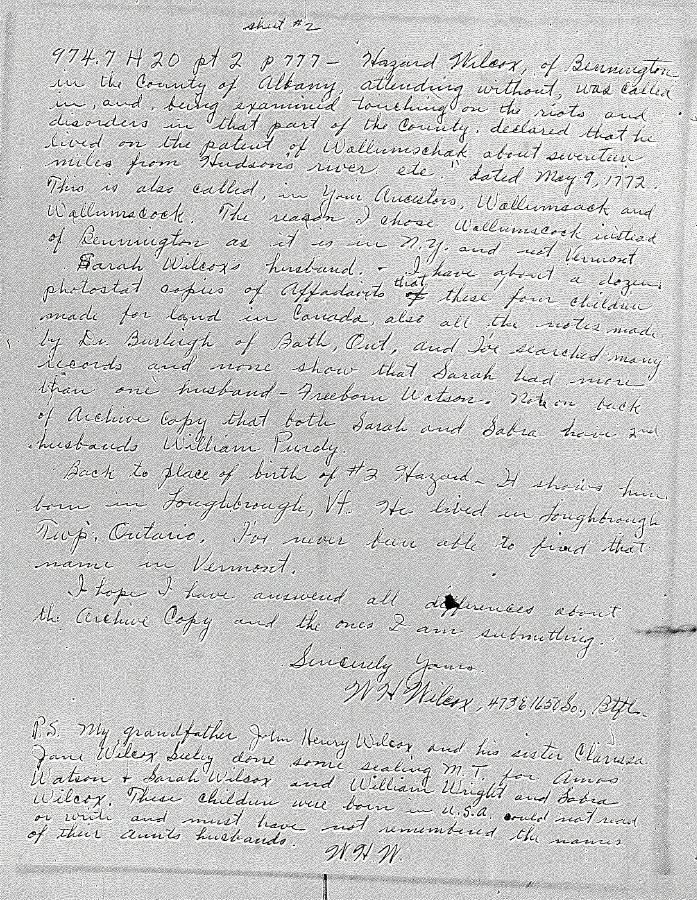 sheet #2
974.7 H 20 pt 2 p 777 - Hazard Wilcox, of Bennington
in the County of Albany, attending without, was called
in, and, being examined touching on the riots and
disorders in that part of the County, declared that he
lived on the patent of Wallumschak about seventeen
miles from Hudson's river etc." dated May 9, 1772.
This is also called, in Your Ancestors, Wallumsack and
Wallumscock. The reason I chose Wallumscock instead
of Bennington as it is in N.Y. and not Vermont
Sarah Wilcox's husband. - I have about a dozen
photostat copies of Affadavits that these four children
made for land in Canada, also all the notes made
by Dr. Burleigh of Bath, Ont, and I've searched many
records and none show that Sarah had more
than one husband - Freeborn Watson. Note on back
of Archive copy that both Sarah and Sabra have 2nd
husbands William Purdy.
Back to place of birth of #2 Hazard - It shows him
born in Loughbrough, Vt. He lived in Loughbrough
Twp, Ontario. I've never been able to find that
name in Vermont.
I hope I have answered all differences about
the Archive Copy and the ones I am submitting.
Sincerely Yours.
W H Wilcox, 473 E 1650 So., Btfl.
P.S. My grandfather John Henry Wilcox and his sister Clarissa
Jane Wilcox Seely done some sealing M.T. for Amos
Watson + Sarah Wilcox and William Wright and Sabra
Wilcox. These children were born in U.S.A. could not read
or write and must have not remembered the names
of their aunts husbands.
W H W.